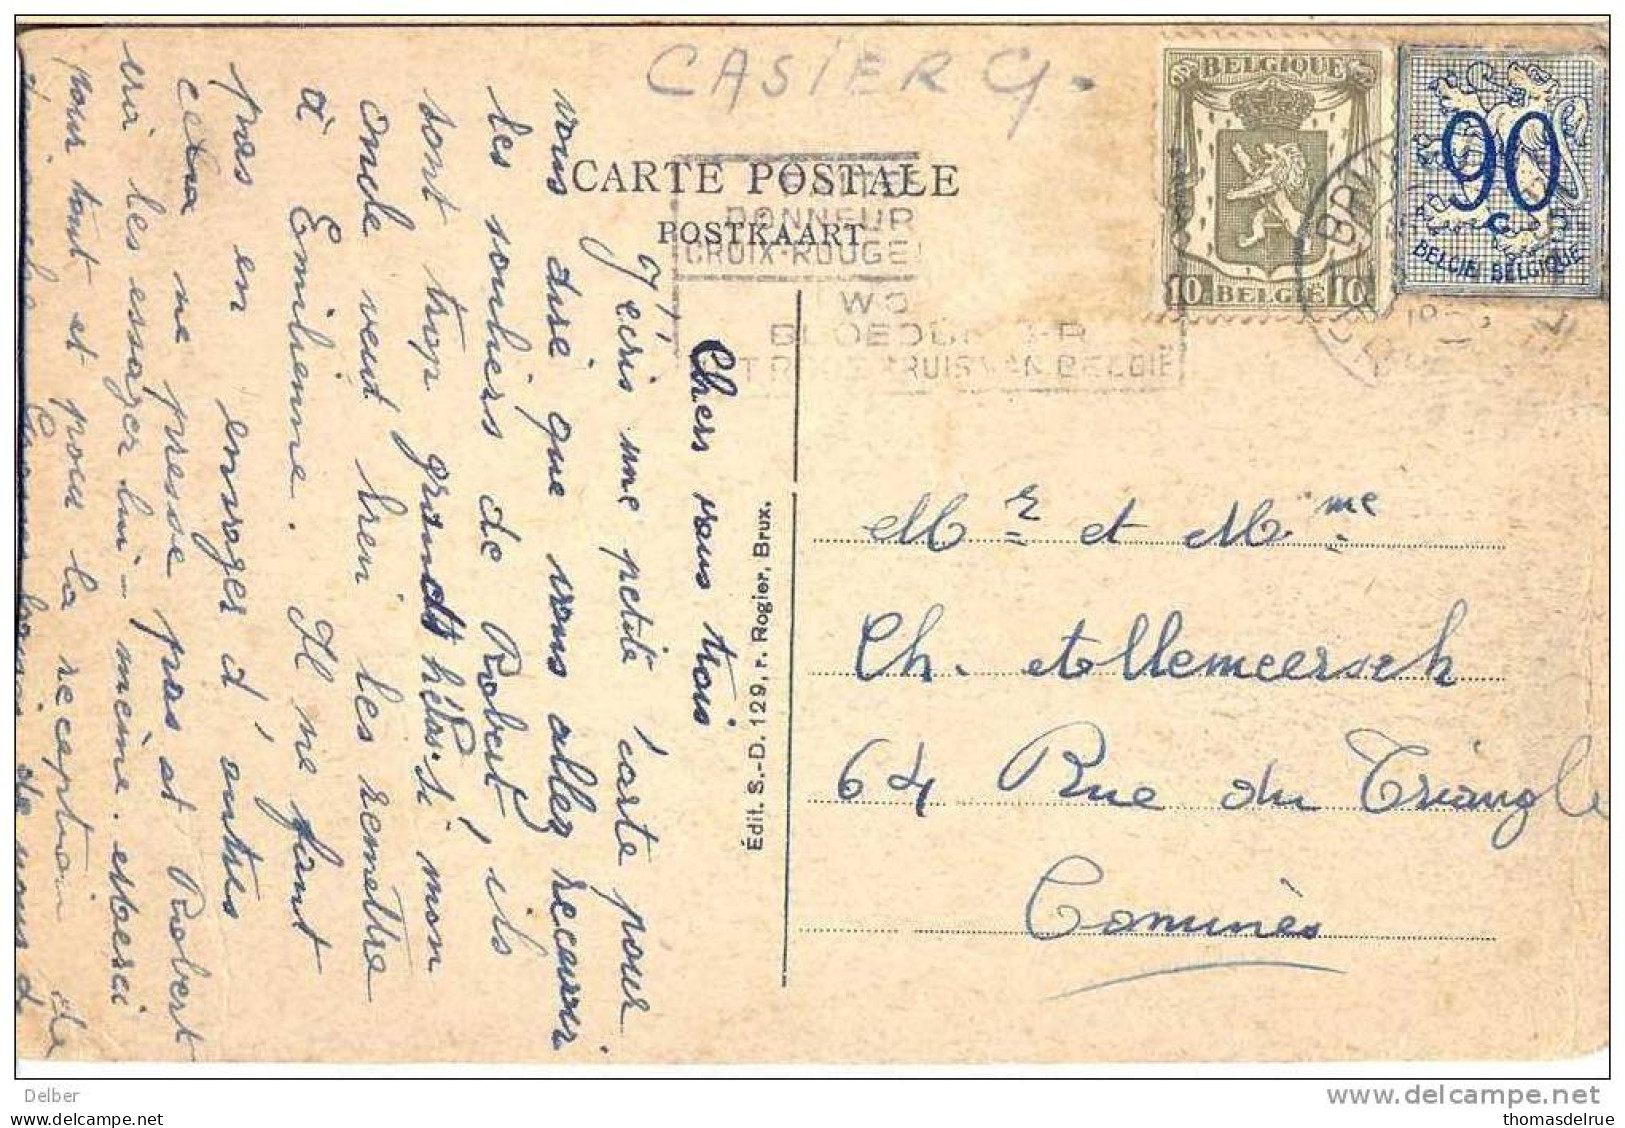 CASIER G.
BELGIQUE
10c BELGIË 10
90
c
BELGIË BELGIQUE
CARTE POSTALE
POSTKAART
DONNEUR
CROIX-ROUGE
UW
KRUIS VAN BELGIË
BRU
Chers vous trois
J'écris une petite carte pour
vous dire que vous allez recevoir
les souliers de Robert, ils
sont trop grands hélas. Si mon
oncle veut bien les remettre
à Emilienne. Il ne faut
pas en enrager d'autres
cela ne presse pas et Robert
ira les essayer lui-même. Merci
pour tout et pour la réception de
bons baisers de nous
Édit. S.-D. 129, r. Rogier, Brux.
Mr et Mme
Ch. Ollemeersch
64 Rue du Triangle
Comines
Delber
delcampe.net
thomasdelrue